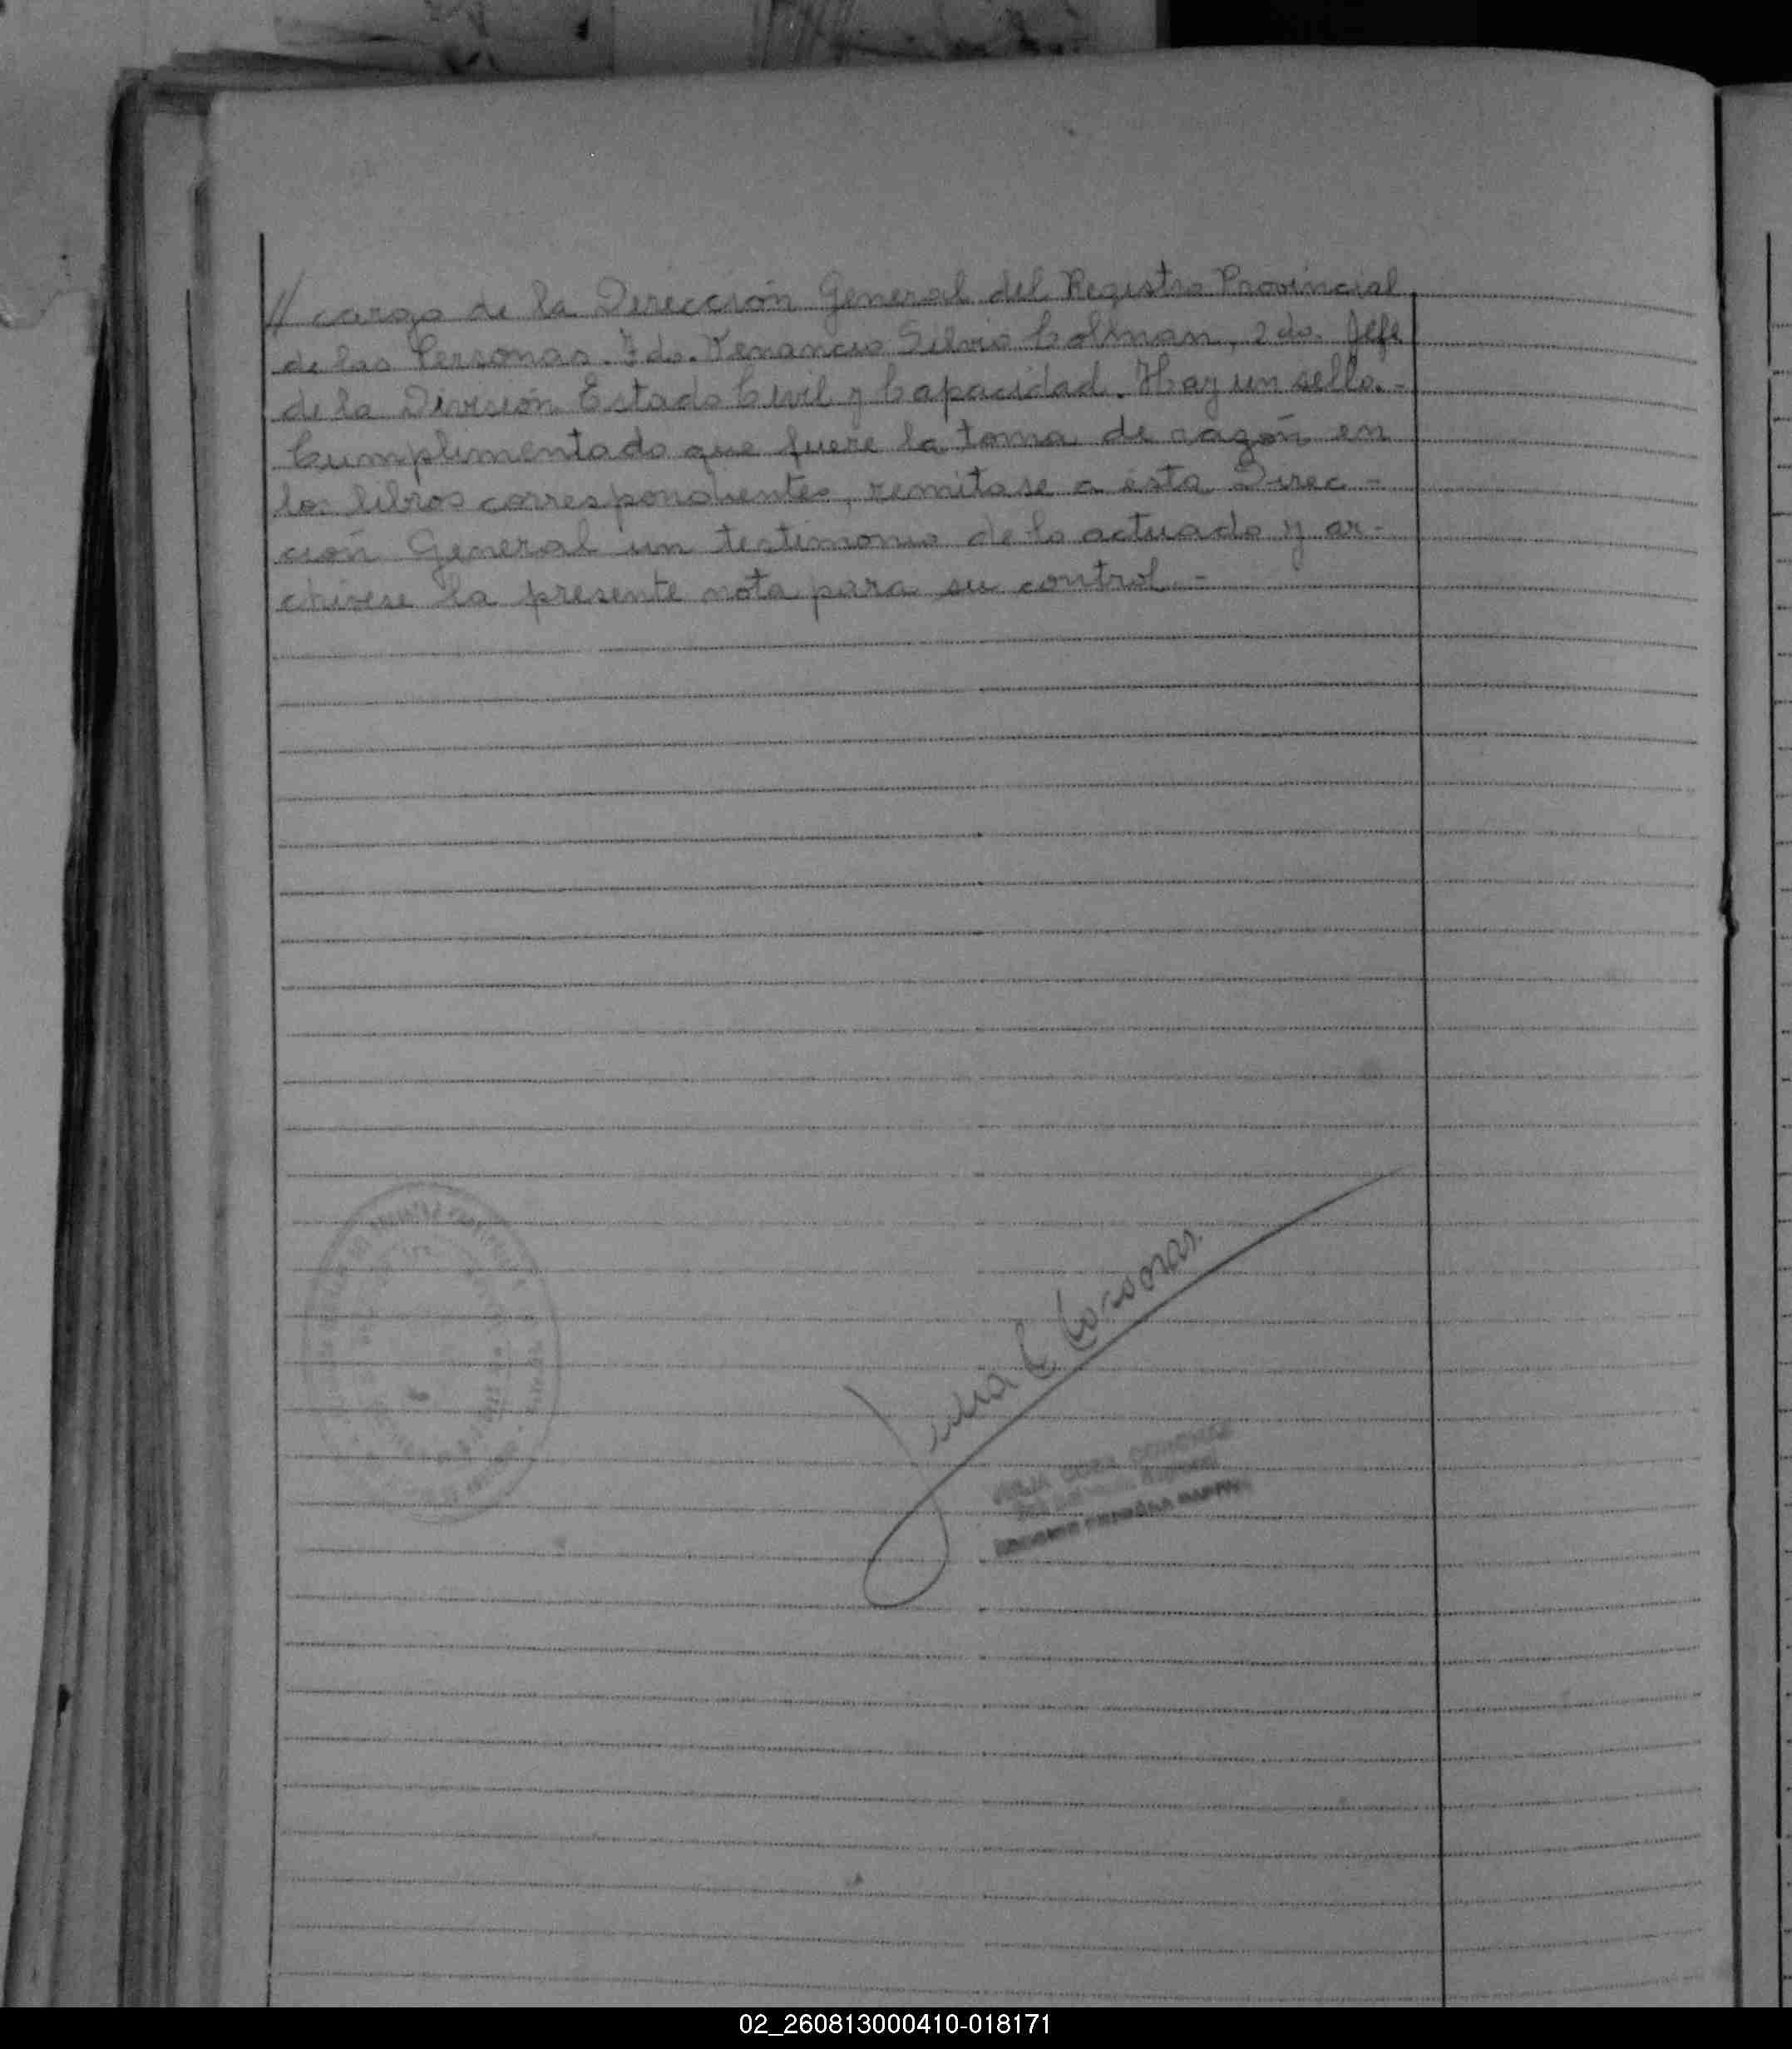 // cargo de la Dirección General del Registro Provincial
de las Personas. Fdo. Venancio Silvio Colman, 2do. Jefe
de la División Estado Civil y Capacidad. Hay un sello.-
Cumplimentado que fuere la toma de razón en
los libros correspondientes, remitase a ésta Direc-
ción General un testimonio de lo actuado y ar-
chivese la presente nota para su control.-
Julia C
JULIA
02_260813000410-018171